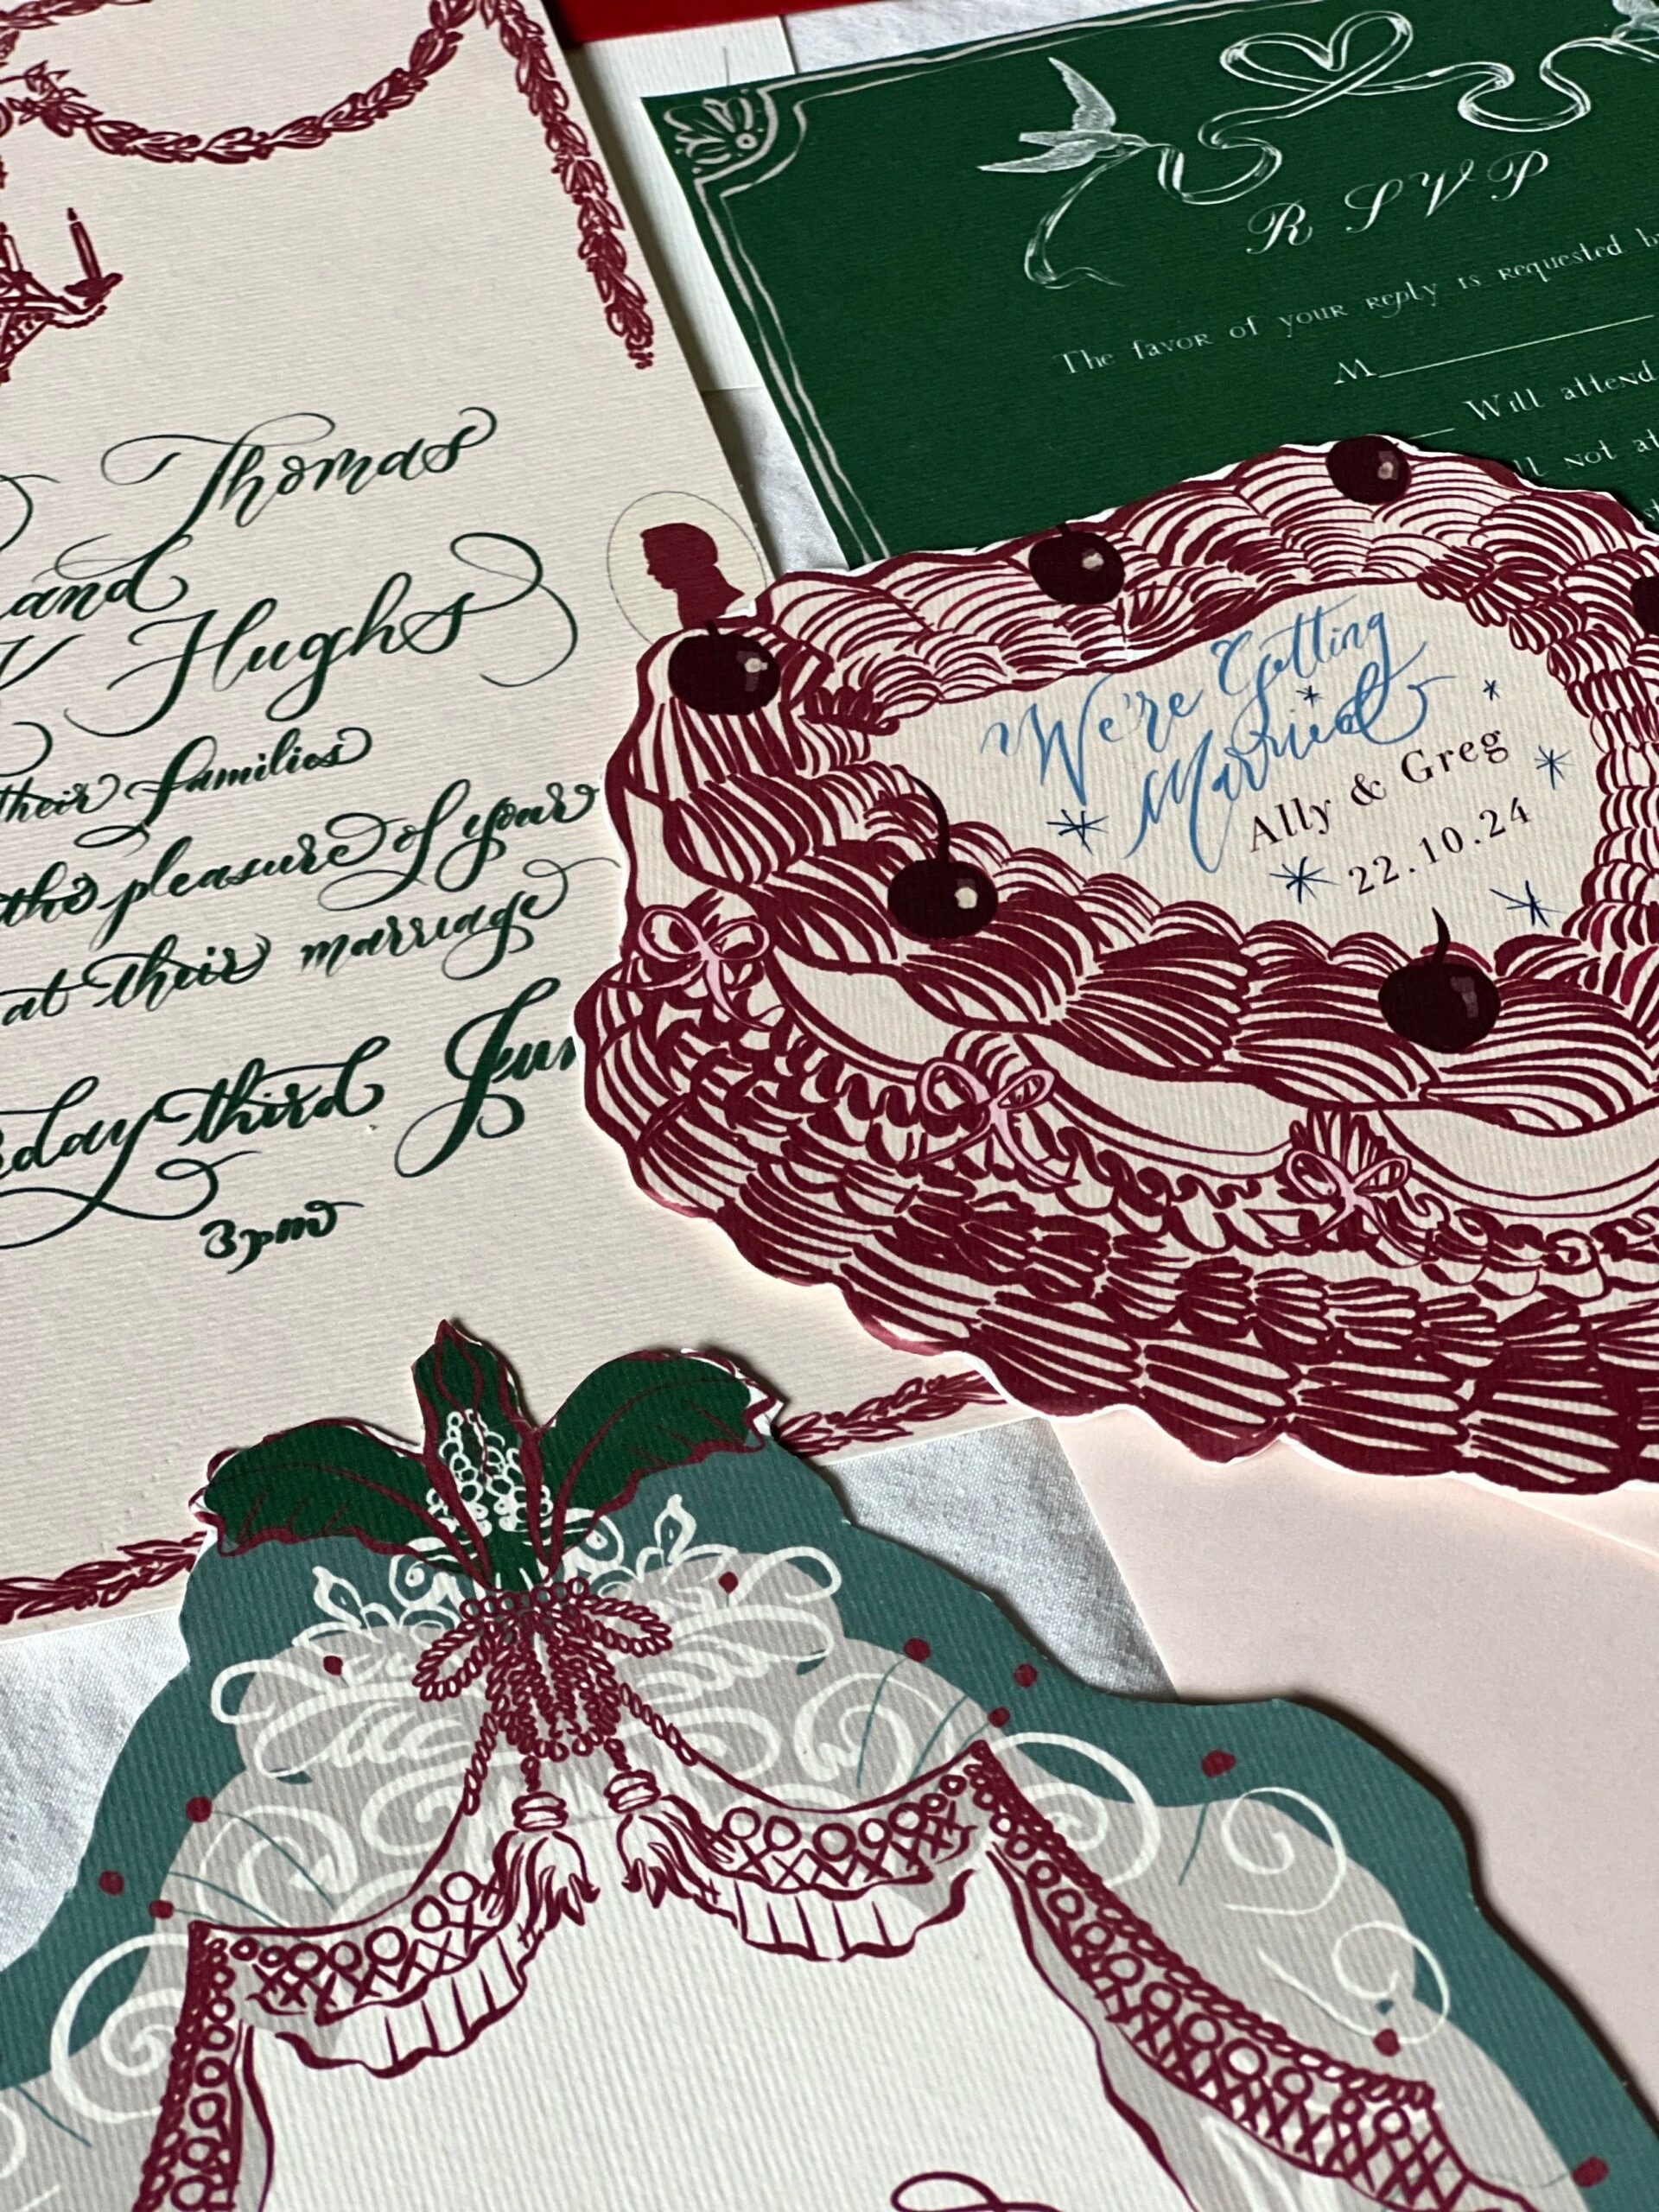 Thomas
and
Hughs
their families
the pleasure of your
at their marriage
third
3pm
R S V P
The favor of your reply is requested
M
Will attend
not
We're Getting
Married
Ally & Greg
22.10.24